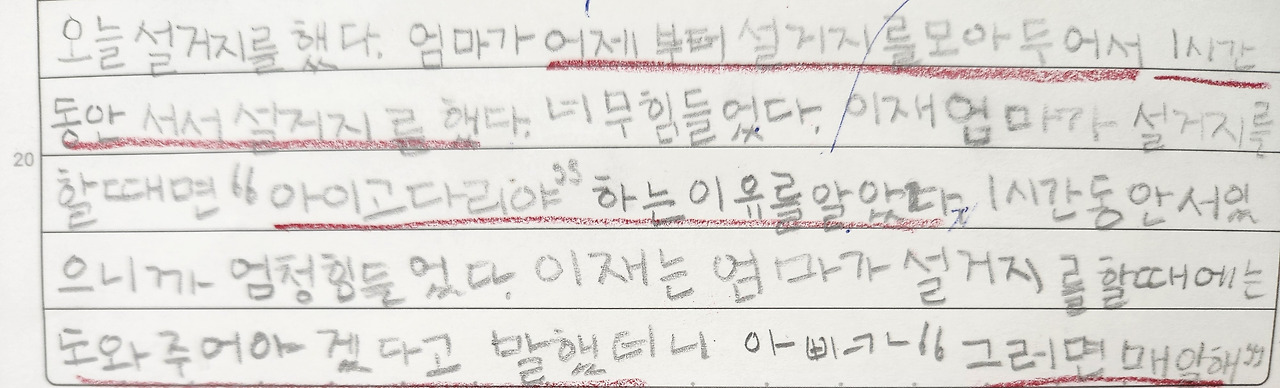 오늘 설거지를 했다. 엄마가 어제 부터 설거지 를모아 두 어서 1시간
동안 서서 설거지 를 했다. 너무힘들었다. 이재 엄마가 설거지를
20
할때면 "아이고다리야" 하는이유를알았다. 1시간동안서있
으니까 엄청힘들 었다. 이재는 엄마가 설거지 를할때에는
도와주어야 겠다고 말했더니 아빠가 "그러면 매일해"